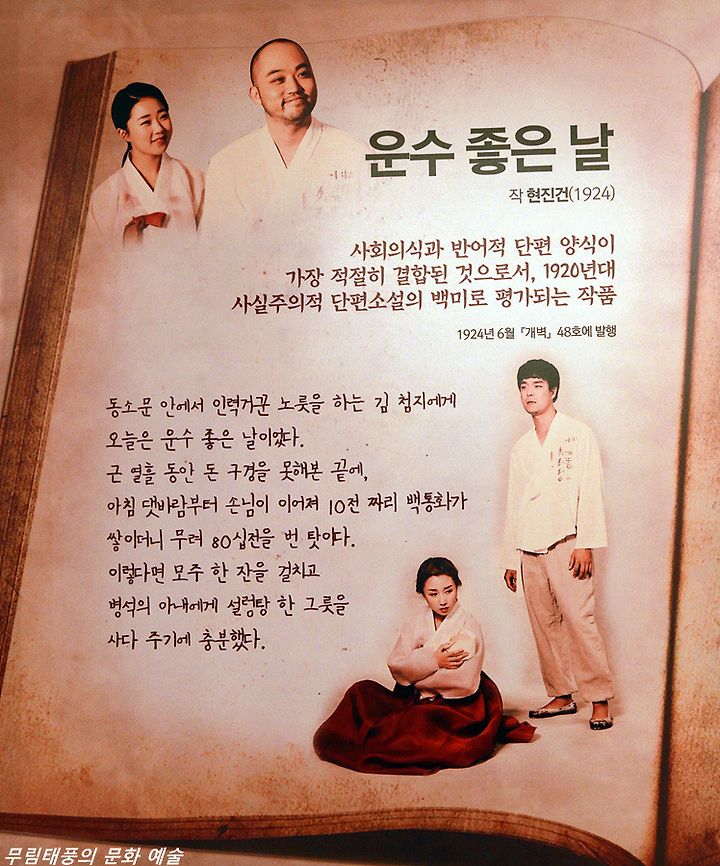 운수 좋은 날
작 현진건(1924)
사회의식과 반어적 단편 양식이
가장 적절히 결합된 것으로서, 1920년대
사실주의적 단편소설의 백미로 평가되는 작품
1924년 6월 『개벽』 48호에 발행
동소문 안에서 인력거꾼 노릇을 하는 김 첨지에게
오늘은 운수 좋은 날이었다.
근 열흘 동안 돈 구경을 못해본 끝에,
아침 댓바람부터 손님이 이어져 10전 짜리 백통화가
쌓이더니 무려 80십전을 번 탓이다.
이렇다면 모주 한 잔을 걸치고
병석의 아내에게 설렁탕 한 그릇을
사다 주기에 충분했다.
무림태풍의 문화 예술